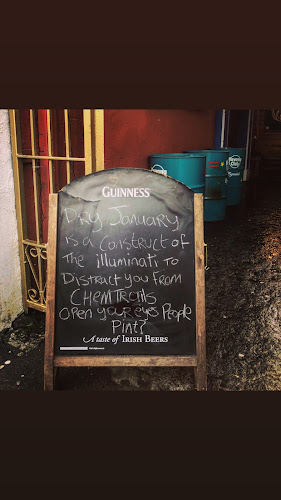 GUINNESS
Dry January
is a construct of
the illuminati to
Distract you from
CHEMTRAILS
open your eyes People
Pint?
A taste of IRISH BEERS